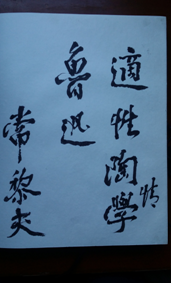 適性陶學情
魯迅
常黎夫